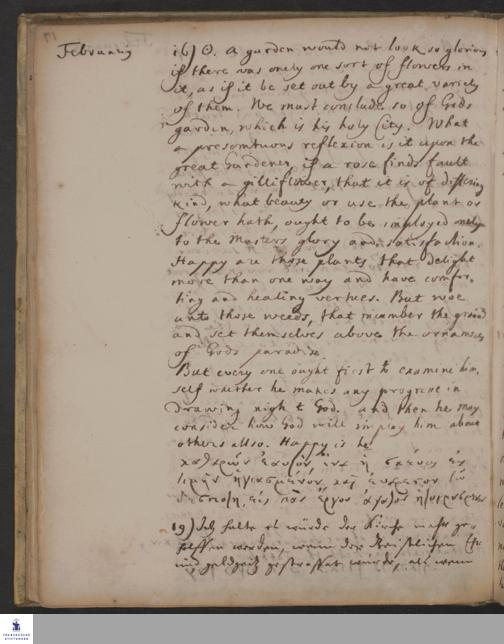 Februarij
16) ☉. A garden would not look so glorious
if there was onely one sort of flowers in
it, as if it be set out by a great variety
of them. We must conclude so of Gods
garden, which is his holy City. What
a presomtuous reflexion is it upon the
great Gardener, if a rose finds fault
with a gilliflower, that it is of differing
kind, what beauty or use the plant or
flower hath, ought to be imployd only
to the Masters glory and satisfaction.
Happy are those plants, that delight
more than one way and have comfor-
ting and healing vertues. But woe
unto those weeds, that incumber the ground
and set themselves above the ornaments
of Gods paradise.
But every one ought first to examine him
self whether he makes any progress in
drawing nigh t God. and then he may
consider how God will imploy him about
others allso. Happy is he
ἑαυτὸν, ἵνα ᾖ σκεῦος εἰς
ἡγιασμένον, καὶ εὔχρηστον
εἰς πᾶν ἔργον ἀγαθὸν
19) Ich halte es würde der Kirche mehr ge-
holffen werden, wenn der Geistlichen
und geldgeitz gestraffet würde, als wenn
FRANCKESCHE
STIFTUNGEN